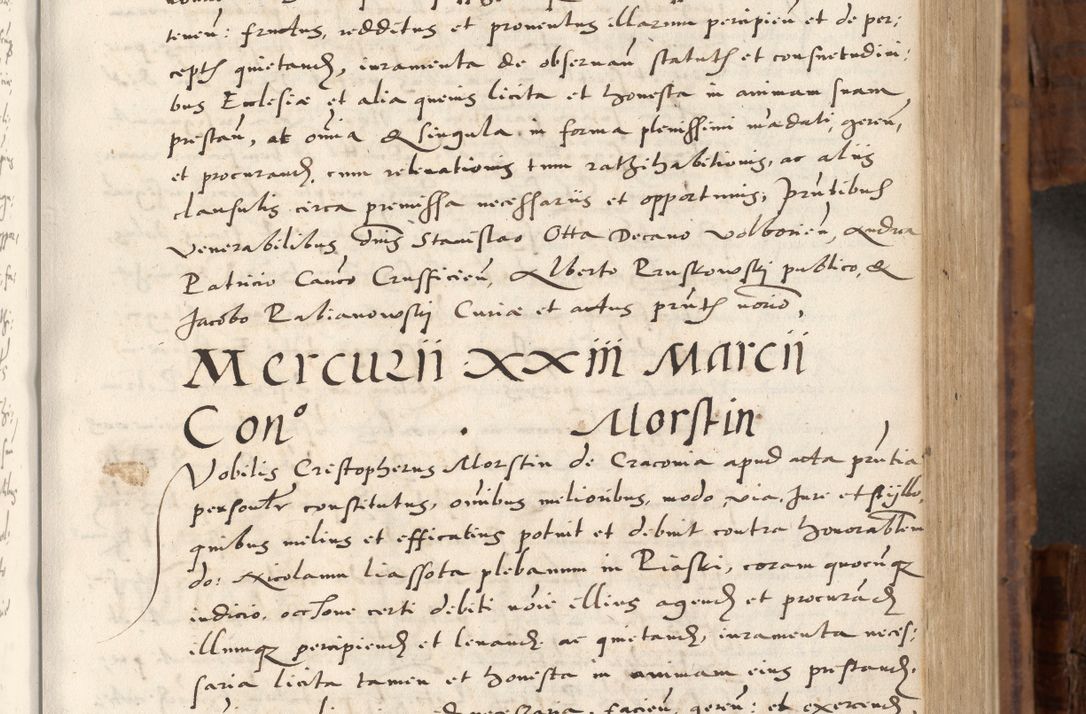 tenen: fructus, redditus et proventus illarum percipien et de per:
ceptis quietand, iuramenta de observan statutis et consuetudini:
bus Ecclesiæ et alia quevis licita et honesta in animam suam
prestan, ac omnia & singula in forma plenissimi mandati, geren,
et procurand, cum relevationis tum rathihabitionis, ac aliis
clausulis circa premissa necessariis et opportunis, Pntibus
Venerabilibus dnis Stanislao Otta Decano Volborien, Andrea
Patricio Canco Crusficien, Alberto Pruskowskij publico, &
Jacobo Rabianowskij Curiæ et actus pntis norio,
Mercurii XXiii Marcii
Cono . Morstin
Nobilis Cristopherus Morstin de Cracovia apud acta pntia
personlr constitutus, omnibus melioribus, modo, via, Jure et stijllo,
quibus melius et efficatius potuit et debuit contra honorablem
do: Nicolaum liassota plebanum in Piaski, coram quocunque
iudicio, occone certi debiti noie illius agend et procurand
illumque percipiend et levand ac quietand, iuramenta neces:
saria licita tamen et honesta in animam eius prestand,
necessaria, facien, geren: et exercend,